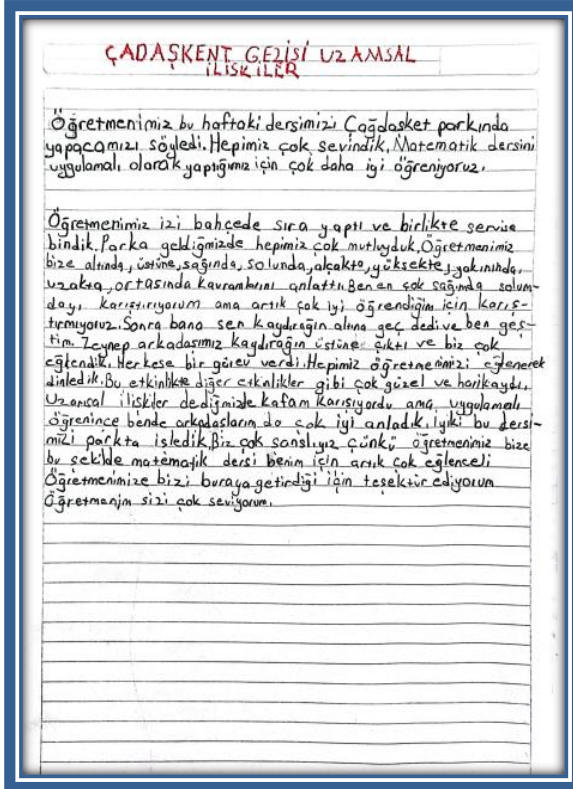 ÇADAŞKENT GEZİSİ UZAMSAL
İLİSKİLER
Öğretmenimiz bu haftaki dersimizi Çağdasket parkında
yapacamızı söyledi. Hepimiz çok sevindik, Matematik dersini
uygulamalı olarak yaptığımız için çok daha iyi öğreniyoruz.
Öğretmenimiz izi bahçede sıra yaptı ve birlikte servise
bindik. Parka geldiğmizde hepimiz çok mutluyduk, Öğretmenimiz
bize altında, üstüne, sağında, solunda, alçakta, yüksekte, yakınında,
uzakta, ortasında kavramlarını anlattı. Ben en çok sağımda solum-
dayı karıştırıyorum ama artık çok iyi öğrendiğim için karış-
tırmıyoruz. Sonra bana sen kaydırağın altına geç dedi ve ben geç-
tim. Zeynep arkadaşımız kaydırağın üstüne çıktı ve biz çok
eğlendik. Herkese bir görev verdi. Hepimiz öğretmenimizi eğlenerek
dinledik. Bu etkinlikte diğer etkinlikler gibi çok güzel ve harikaydı.
Uzamsal ilişkiler dediğmizde kafam karısıyordu ama, uygulamalı
öğrenince bende arkadaslarım da çok iyi anladık. İyiki bu dersi-
mizi parkta isledik. Biz çok sanslıyız Çünkü öğretmenimiz bize
bu şekilde matematik dersi benim için artık çok eğlenceli
Öğretmenimize bizi buraya getirdiği için teşekkür ediyorum
Öğretmenim sizi çok seviyorum.